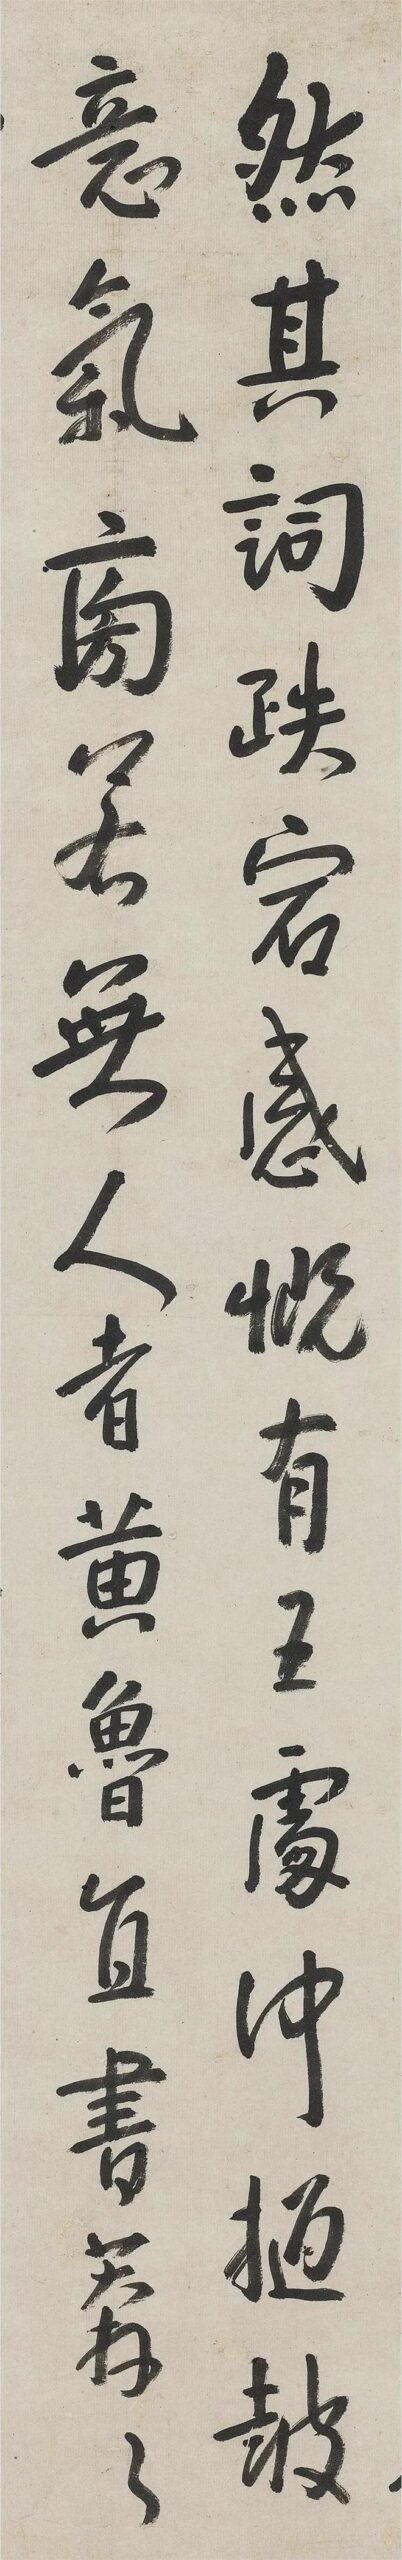 然其詞跌宕感慨有王處仲撾鼓
意氣㫄若無人者黃魯直書莽〻